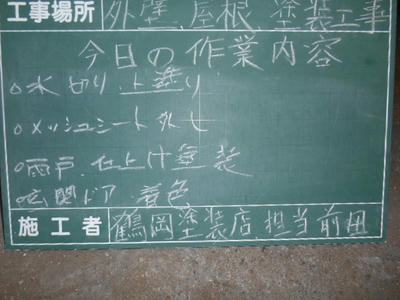 工事場所 外壁、屋根、塗装工事
今日の作業内容
○水切り、上塗り
○メッシュシート外し
○雨戸、仕上げ塗装
○玄関ドア、着色
施工者 鶴岡塗装店、担当前田